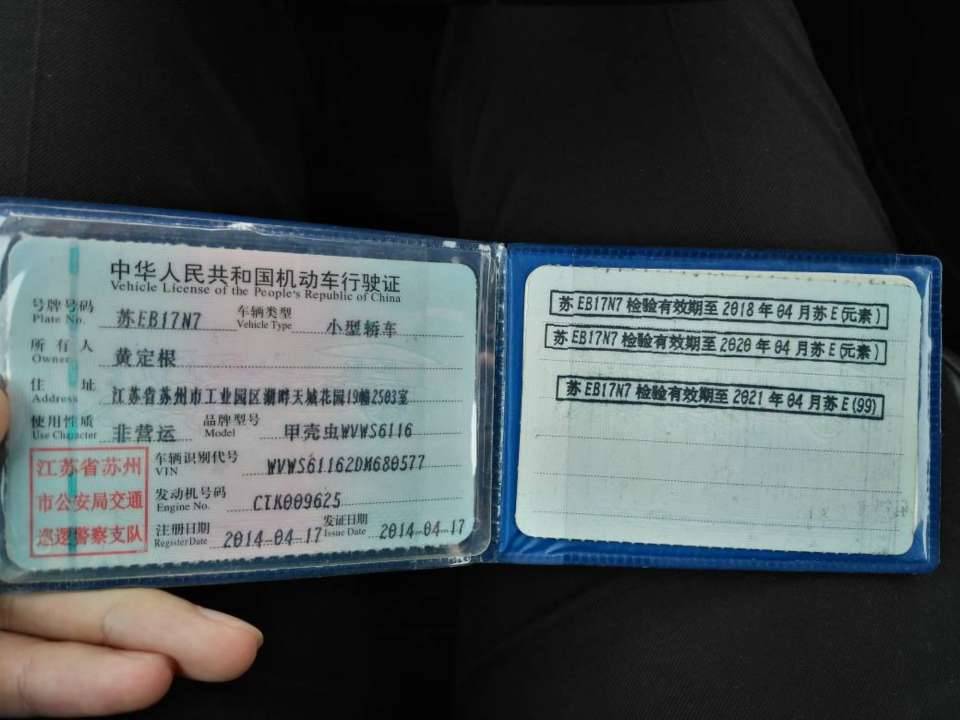 中华人民共和国机动车行驶证
Vehicle License of the People's Republic of China
号牌号码 苏EB17N7 车辆类型 小型轿车
Plate No. Vehicle Type
所有人 黄定根
Owner
住址 江苏省苏州市工业园区湖畔天城花园19幢2503室
Address
使用性质 非营运 品牌型号 甲壳虫WVWS6116
Use Character Model
车辆识别代号 WVWS61162DM680577
VIN
发动机号码 CTK009625
Engine No.
注册日期 2014-04-17 发证日期 2014-04-17
Register Date Issue Date
江苏省苏州
市公安局交通
巡逻警察支队
苏EB17N7 检验有效期至 2018 年 04 月苏 E(元素)
苏EB17N7 检验有效期至 2020 年 04 月苏 E(元素)
苏EB17N7 检验有效期至 2021 年 04 月苏 E(99)